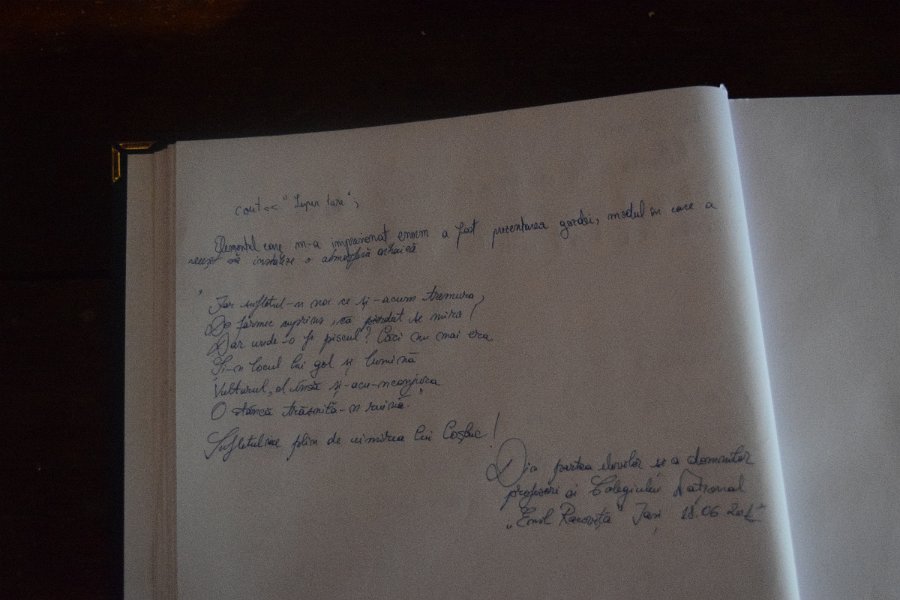 cout<< "Lupu Iara";
Elementul care m-a impresionat enorm a fost prezentarea gazdei, modul în care a
reușit să instaleze o atmosferă arhaică
"Iar sufletul-n noi ce și-acum tremura
De farmec suprins, că pierdut se mira
Dar unde-o fi piscul? Căci nu mai era
Și-n locul lui gol și lumină
Vulturul, el însă și-acu-nconjura
O stâncă trăsnită-n ruină.
Sufletul plin de uimirea lui Coșbuc!
Din partea elevilor și a domnilor
profesori ai Colegiului Național
„Emil Racoviță" Iași 18.06